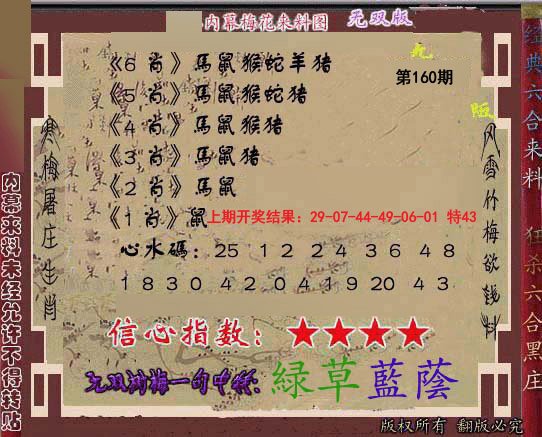 内幕梅花来料图 无双版
《6 肖》馬鼠猴蛇羊猪
第160期
《5 肖》馬鼠猴蛇猪
《4 肖》馬鼠猴猪
《3 肖》馬鼠猪
《2 肖》馬鼠
《1 肖》鼠
上期开奖结果：29-07-44-49-06-01 特43
心水碼：25 12 24 36 48
18 30 42 04 19 20 43
信心指数：★★★★
緑草藍蔭
版权所有 翻版必究
寒梅屠庄生肖
风雪竹梅欲钱料
内幕来料未经允许不得转贴
经典六合来料
狂杀六合黑庄